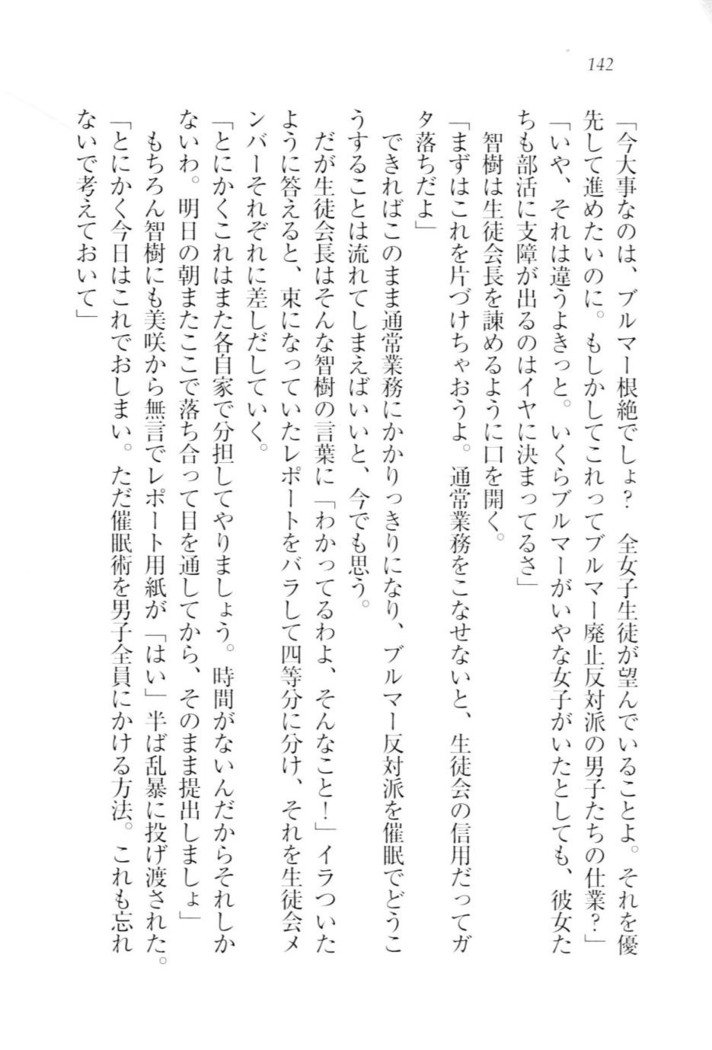 142
「今大事なのは、ブルマー根絶でしょ？　全女子生徒が望んでいることよ。それを優
先して進めたいのに。もしかしてこれってブルマー廃止反対派の男子たちの仕業？」
「いや、それは違うよきっと。いくらブルマーがいやな女子がいたとしても、彼女た
ちも部活に支障が出るのはイヤに決まってるさ」
智樹は生徒会長を諫めるように口を開く。
「まずはこれを片づけちゃおうよ。通常業務をこなせないと、生徒会の信用だってガ
タ落ちだよ」
できればこのまま通常業務にかかりっきりになり、ブルマー反対派を催眠でどうこ
うすることは流れてしまえばいいと、今でも思う。
だが生徒会長はそんな智樹の言葉に「わかってるわよ、そんなこと！」イラついた
ように答えると、束になっていたレポートをバラして四等分に分け、それを生徒会メ
ンバーそれぞれに差しだしていく。
「とにかくこれはまた各自家で分担してやりましょう。時間がないんだからそれしか
ないわ。明日の朝またここで落ち合って目を通してから、そのまま提出しましょ」
もちろん智樹にも美咲から無言でレポート用紙が「はい」半ば乱暴に投げ渡された。
「とにかく今日はこれでおしまい。ただ催眠術を男子全員にかける方法。これも忘れ
ないで考えておいて」